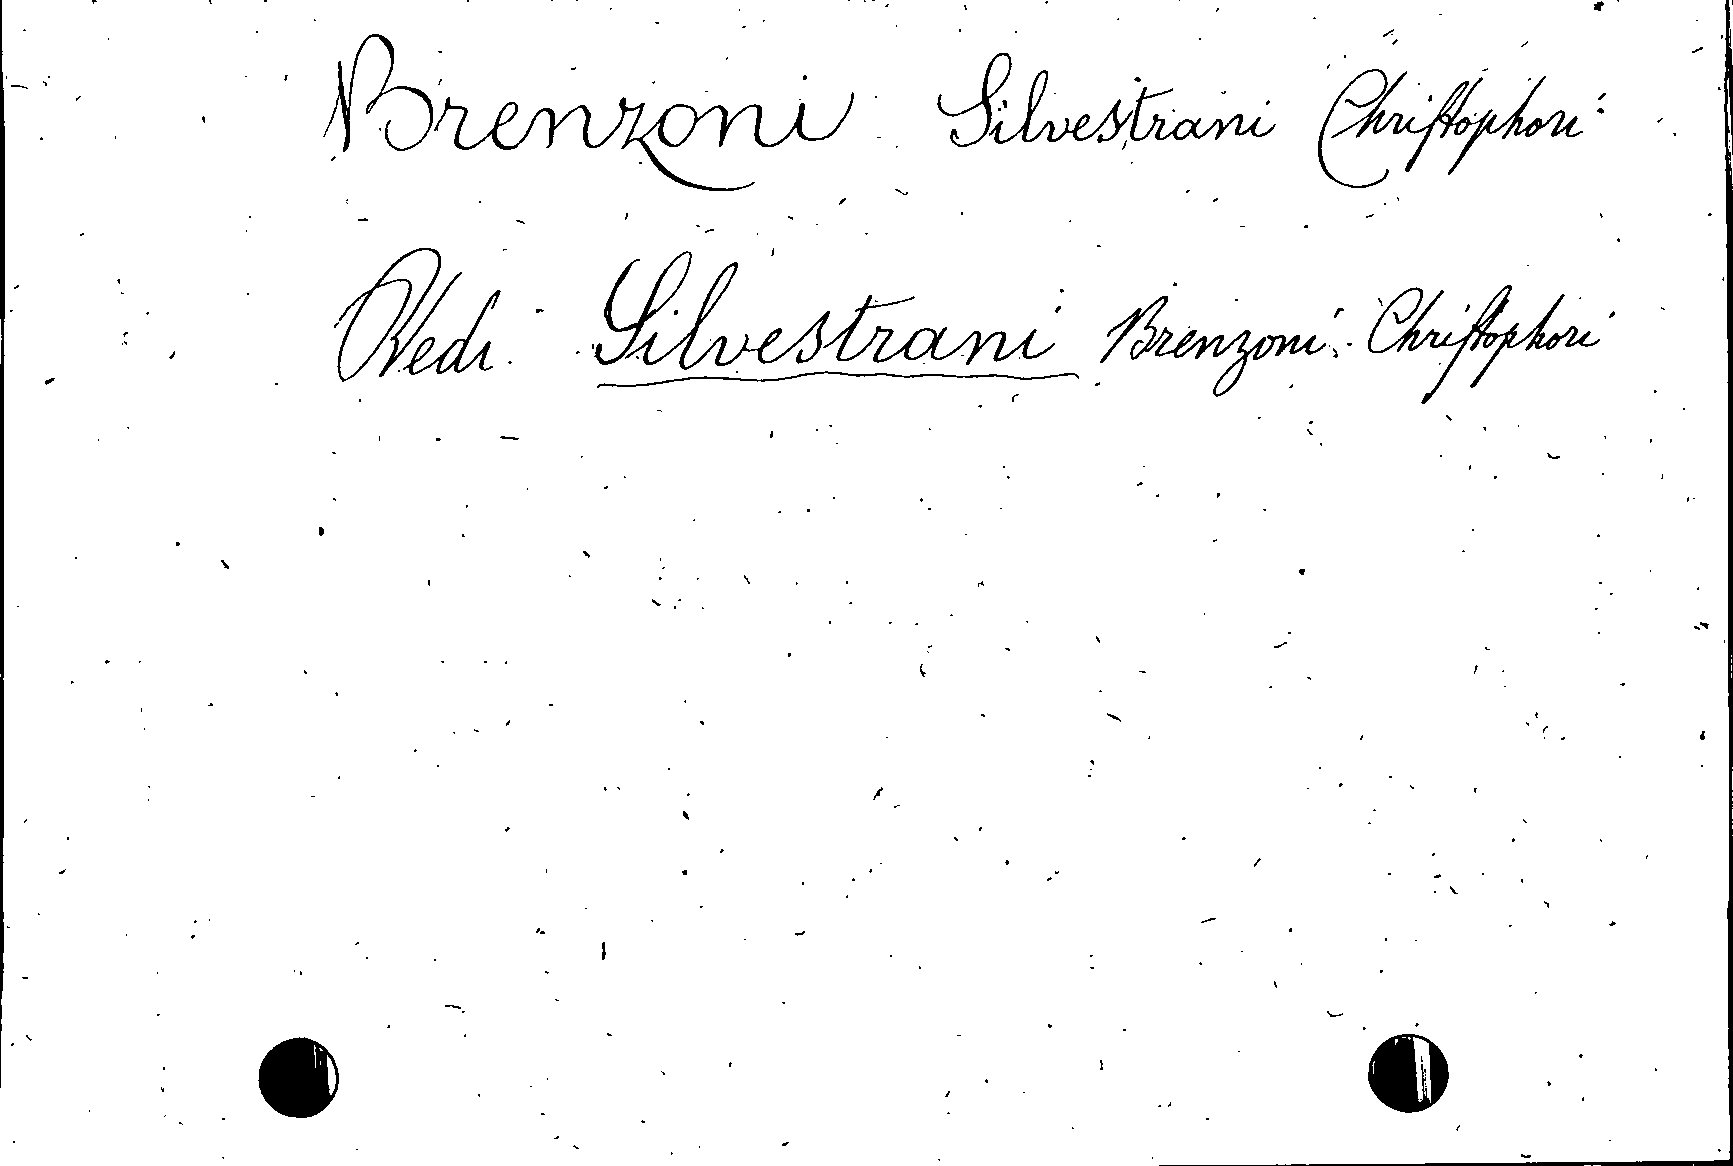 Brenzoni Silvestrani Christophori
Vedi Silvestrani Brenzoni Christophori